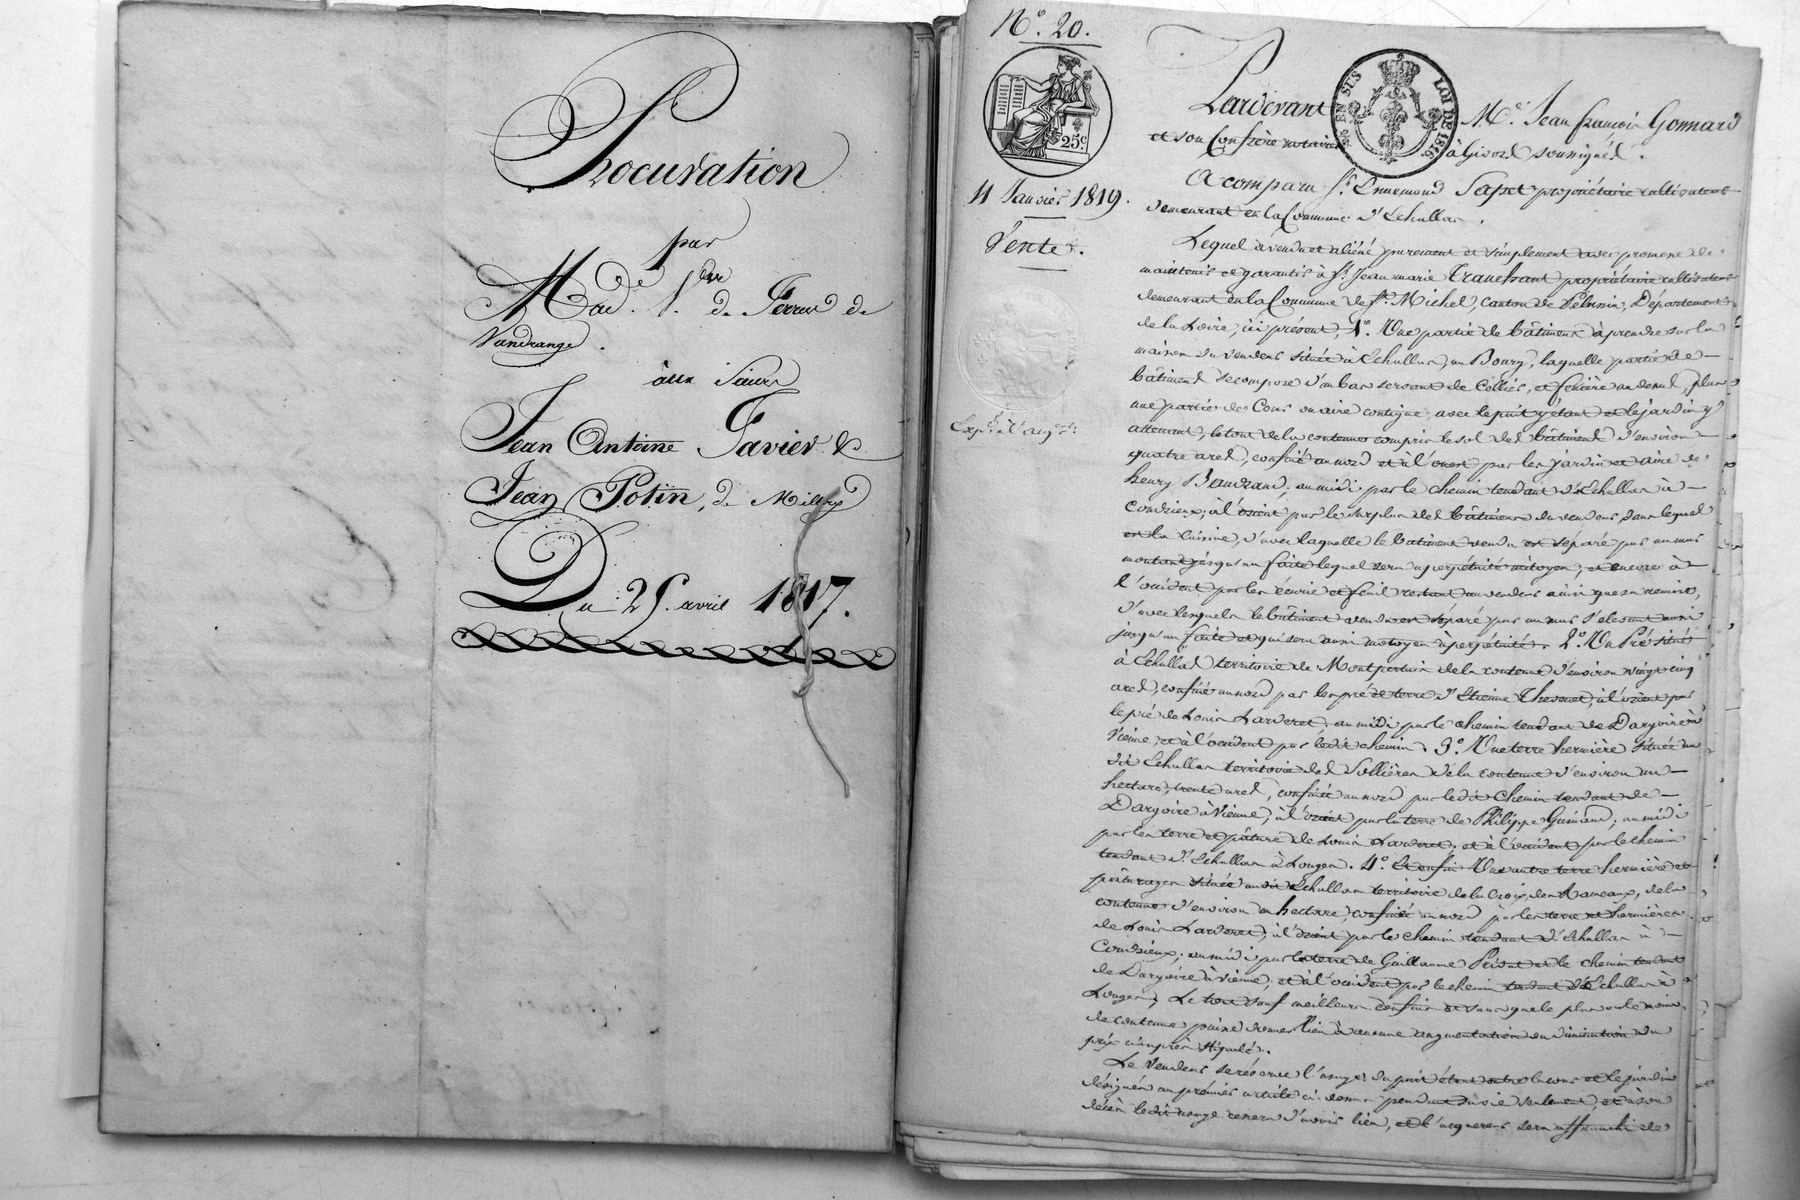 Procuration
par
Mad.e V.ve de Ferrus de
Vandrange.
aux Sieurs
Jean Antoine Favier &
Jean Potin, de Millery
Du 25. avril 1817.
N.o 20.
25c
11 Janvier 1819.
Vente.
LOI DE 1816
Pardevant M.e Jean françois Gonnard
et son Confrère notaires à Givors soussignés.
A comparu S.r Ennemond Sapet propriétaire cultivateur
demeurant en la Commune d'Echallas.
Lequel a vendu et aliéné purement et simplement avec promesse de
maintenir et garantir à S.r Jean marie Tranchant propriétaire cultivateur
demeurant en la Commune de S.t Michel, canton de Pelussin, Département
de la Loire, ici présent, 1.o Une partie de bâtiment à prendre sur la
maison du vendeur située à Echallas, au Bourg, laquelle partie de
bâtiment se compose d'un bas servant de Cellier, et fenière au dessus, plus
une partie de Cour ou aire contigue, avec le puit y étant et le jardin y
attenant, le tout de la contenue compris le sol du bâtiment d'environ
quatre ares, confiné au nord et à l'ouest par les jardin et aire de
henry Baudrand, au midi par le chemin tendant d'Echallas à
Condrieux, à l'orient par le surplus des bâtimens du vendeur, dans lequel
est la cuisine, d'avec laquelle le batiment vendu est séparé par un mur
montant jusqu'au faîte lequel sera à perpétuité mitoyen, et encore à
l'occident par les écurie et fenil restant au vendeur ainsi que sa remise,
d'avec lesquels le bâtiment vendu est séparé par un mur s'élevant aussi
jusqu'au faîte et qui sera aussi mitoyen à perpétuité. 2.o Un Pré situé
à Echallas territoire de Montpertuis de la contenue d'environ vingt cinq
ares, confiné au nord par les pré et terre d'Etienne Thevenet, à l'orient par
le pré de Louis Larderet, au midi par le chemin tendant de Dargoire à
Vienne, et à l'occident par ledit chemin. 3.o Une terre hermière située au
dit Echallas territoire des Sollières de la contenue d'environ un
hectare, trente ares, confinée au nord par ledit chemin tendant de
Dargoire à Vienne, à l'orient par la terre de Philippe Guinand, au midi
par les terre et pâture de Louis Larderet, et à l'occident par le chemin
tendant d'Echallas à Longes. 4.o Et enfin Une autre terre hermière et
pâturages située audit Echallas territoire de la Croix des Rameaux, de la
contenue d'environ un hectare, confinée au nord par les terre et hermières
de Louis Larderet, à l'orient par le chemin tendant d'Echallas à
Condrieux, au midi par la terre de Guillaume et le chemin tendant
de Dargoire à Vienne, et à l'occident par le chemin tendant d'Echallas à
Longes, Le tout sauf meilleurs confins et sans que le plus ou le moins
de contenue puisse donner lieu à aucune augmentation ou diminution du
prix ci après stipulé.
Le Vendeur se réserve l'usage du puit étant entre la cour et le jardin
désignés au premier article ci dessus pendant sa vie seulement, et à son
décès ledit usage cessera d'avoir lieu, et l'acquereur sera affranchi de